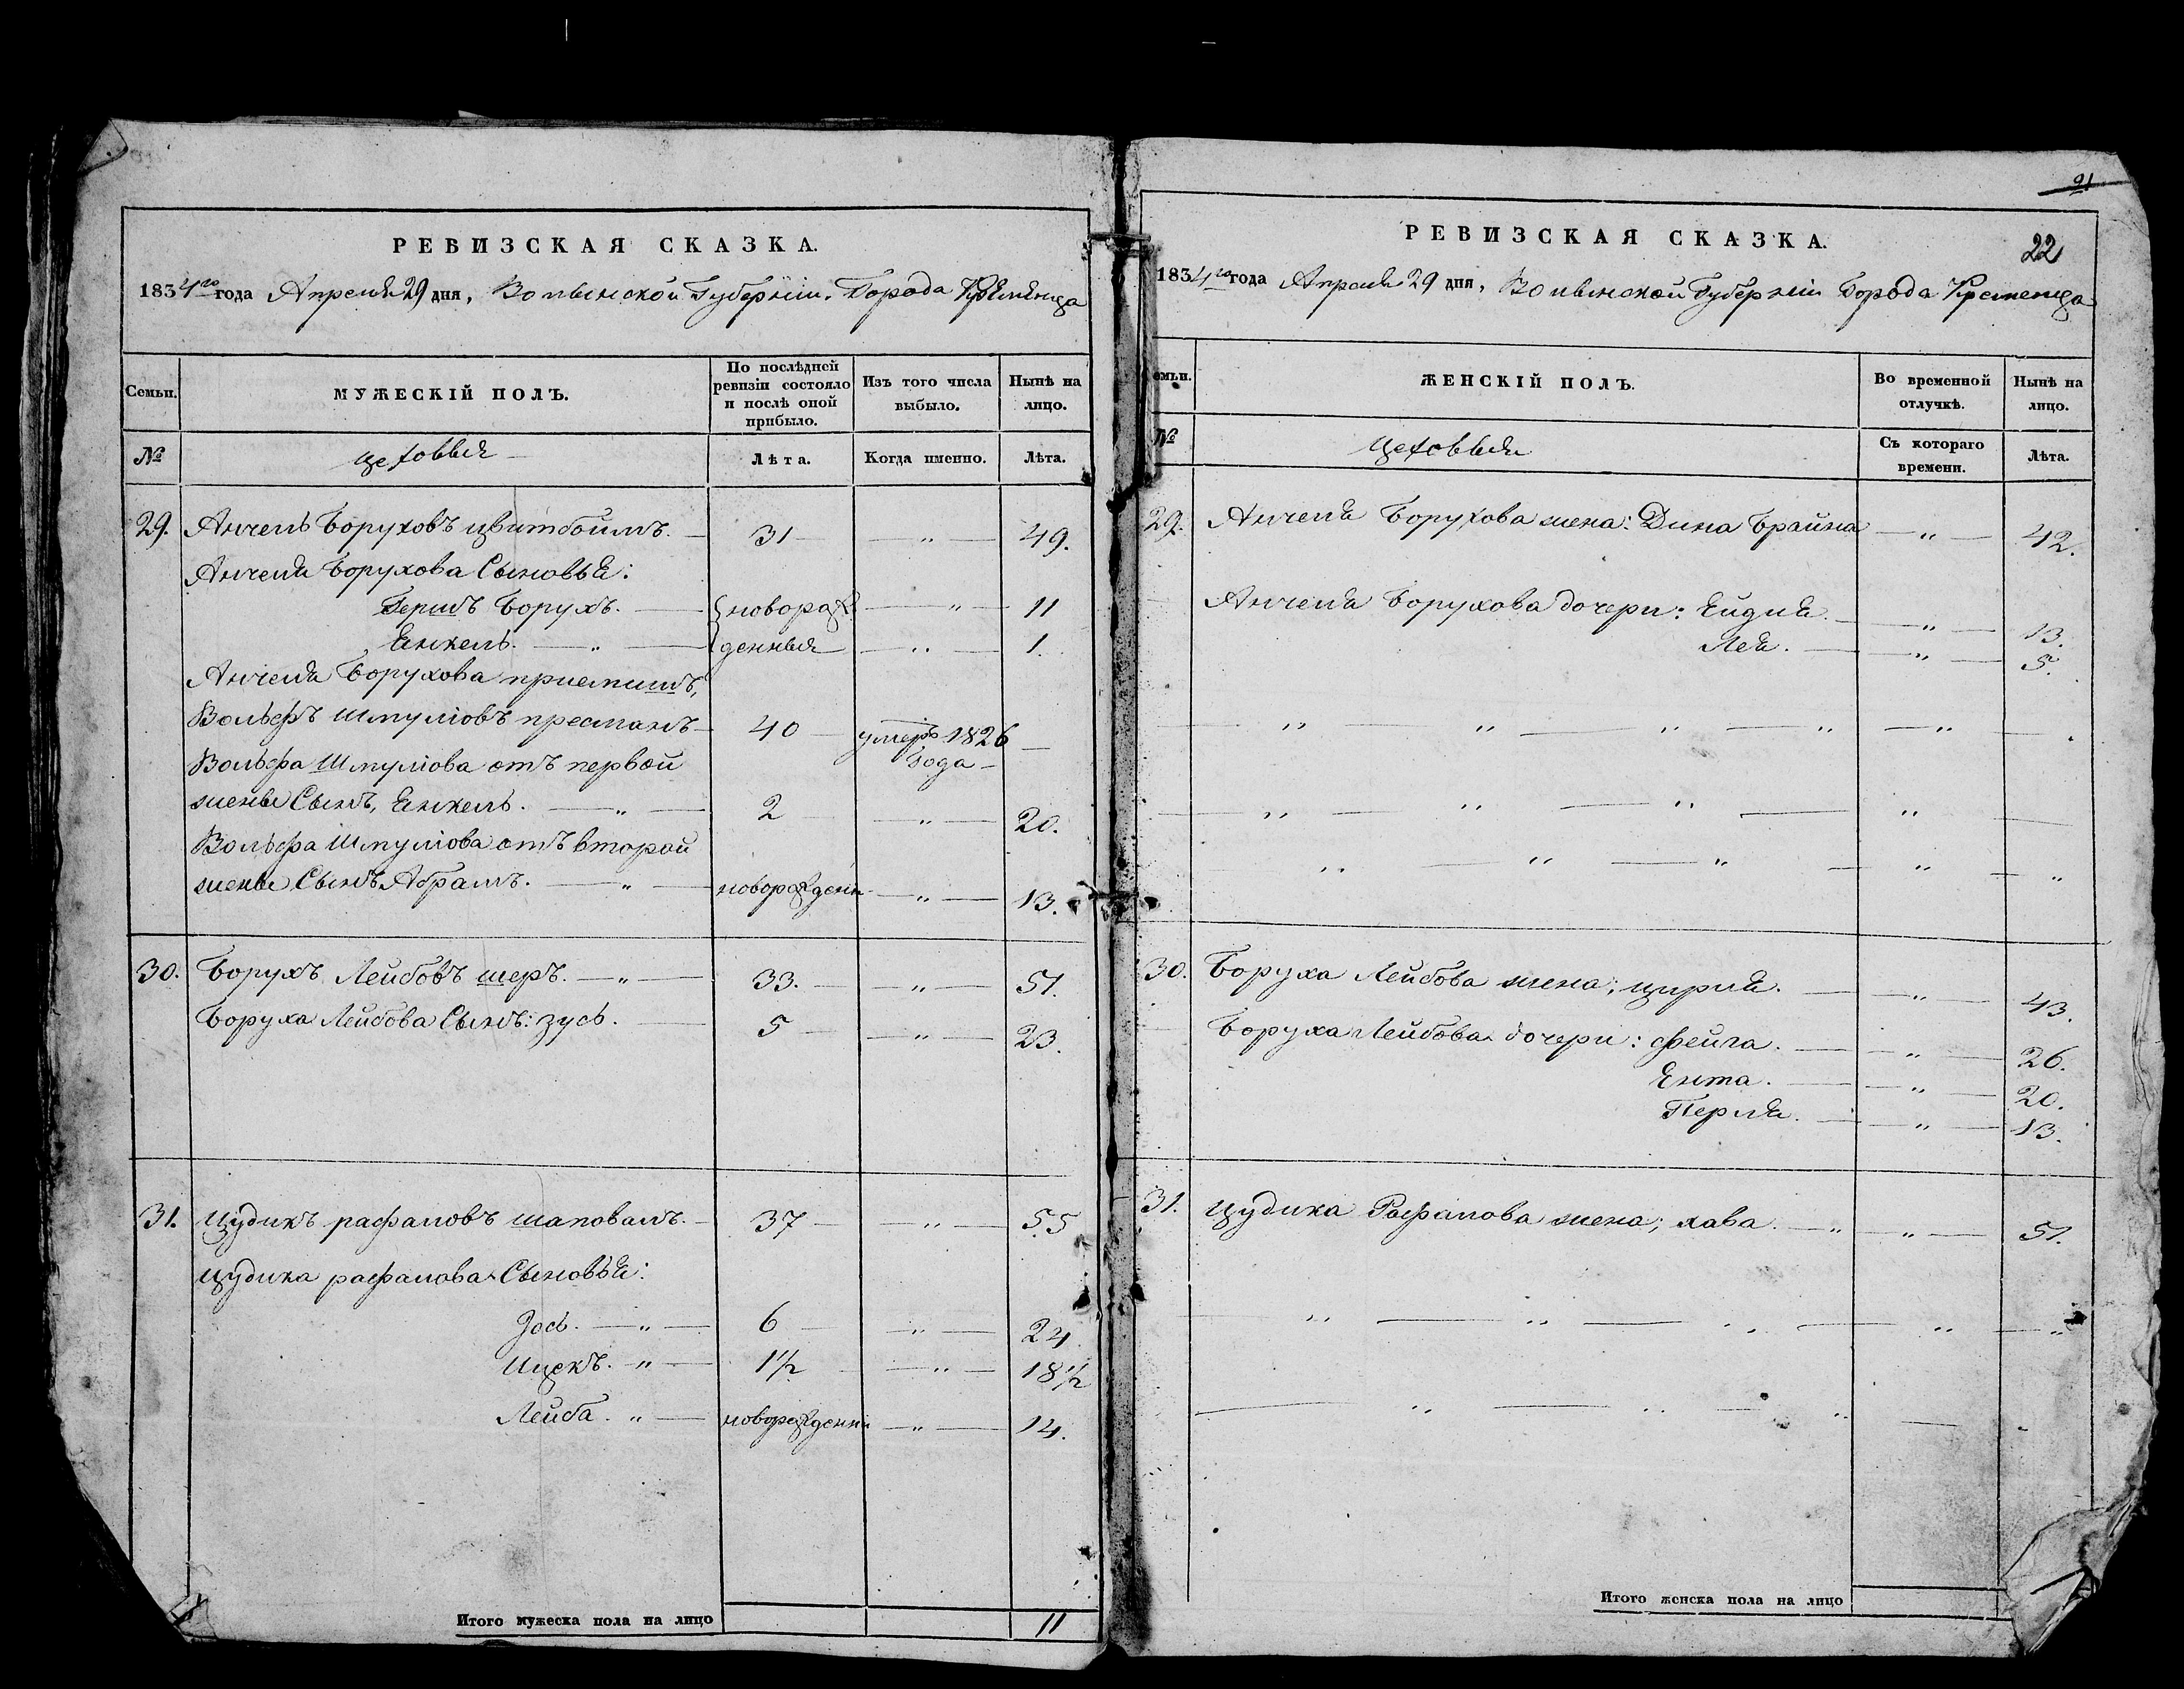 РЕВИЗСКАЯ СКАЗКА.
1834го года Апреля 29 дня, Волынской Губерніи. Города Кремянца
Семьи.
МУЖЕСКІЙ ПОЛЪ.
По послѣдней ревизіи состояло и послѣ оной прибыло.
Изъ того числа выбыло.
Нынѣ на лицо.
№
цеховыя
Лѣта.
Когда именно.
Лѣта.
29. Анчель Боруховъ цвитбоимъ. 31 — „ — 49.
Анчеля Борухова Сыновья:
Гершъ Борухъ. {новораж — „ — 11
Енкель. — „ — {денныя — „ — 1.
Анчеля Борухова приемышъ,
Вольфъ Шмуліовъ пресманъ 40 умеръ 1826 —
Года —
Вольфа Шмуліова отъ первой
жены Сынъ, Енкель. — „ — 2 — „ — 20.
Вольфа Шмуліова отъ второй
жены Сынъ Абрамъ. — „ — новоражденн — „ — 13.
30. Борухъ Лейбовъ шеръ. — „ — 33. — „ — 51.
Боруха Лейбова Сынъ: зусь. 5 — „ — 23.
31. Цудикъ рафаловъ шаповалъ. 37 — „ — 55
Цудика рафалова Сыновья:
Іось. — „ — 6 — „ — 24.
Ицекъ. — „ — 1½ — „ — 18½
Лейба. „ — новоражденн — „ — 14.
Итого мужеска пола на лицо 11
21
РЕВИЗСКАЯ СКАЗКА.
22
1834го года Апреля 29 дня, Волынской Губерніи Города Кременца
Семьи.
ЖЕНСКІЙ ПОЛЪ.
Во временной отлучкѣ.
Нынѣ на лицо.
№
Цеховыя
Съ котораго времени.
Лѣта.
29. Анчеля Борухова жена: Дина Брайна — „ — 42.
Анчеля Борухова дочери: Ейдля. — „ — 13.
Лея. — „ — 5.
30. Боруха Лейбова жена; цирля. — „ — 43.
Боруха Лейбова дочери: фейга. — „ — 26.
Ента. — „ — 20.
Перля. — „ — 13.
31. Цудика Рафалова жена; хава. — „ — „ — 51.
Итого женска пола на лицо